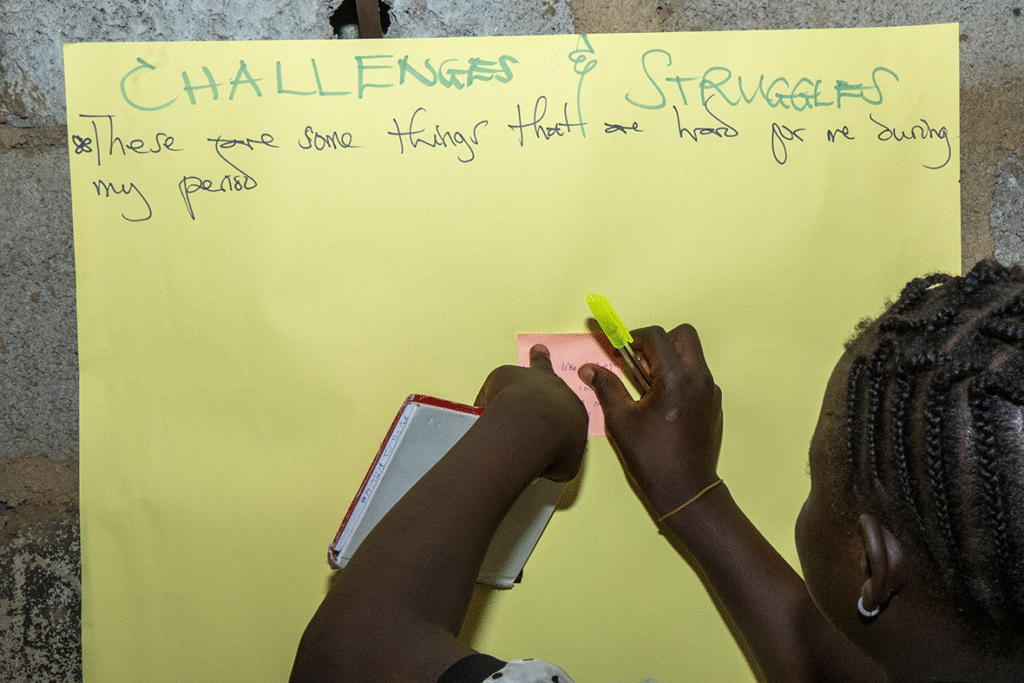 CHALLENGES & STRUGGLES
*These are some things that are hard for me during
my period
like
to